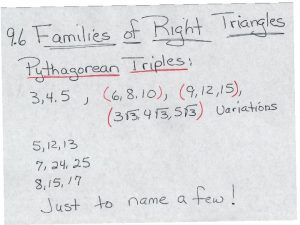 9.6 Families of Right Triangles
Pythagorean Triples:
3,4.5 , (6,8.10), (9,12,15),
(3√3, 4√3, 5√3) Variations
5,12,13
7,24,25
8,15,17
Just to name a few!